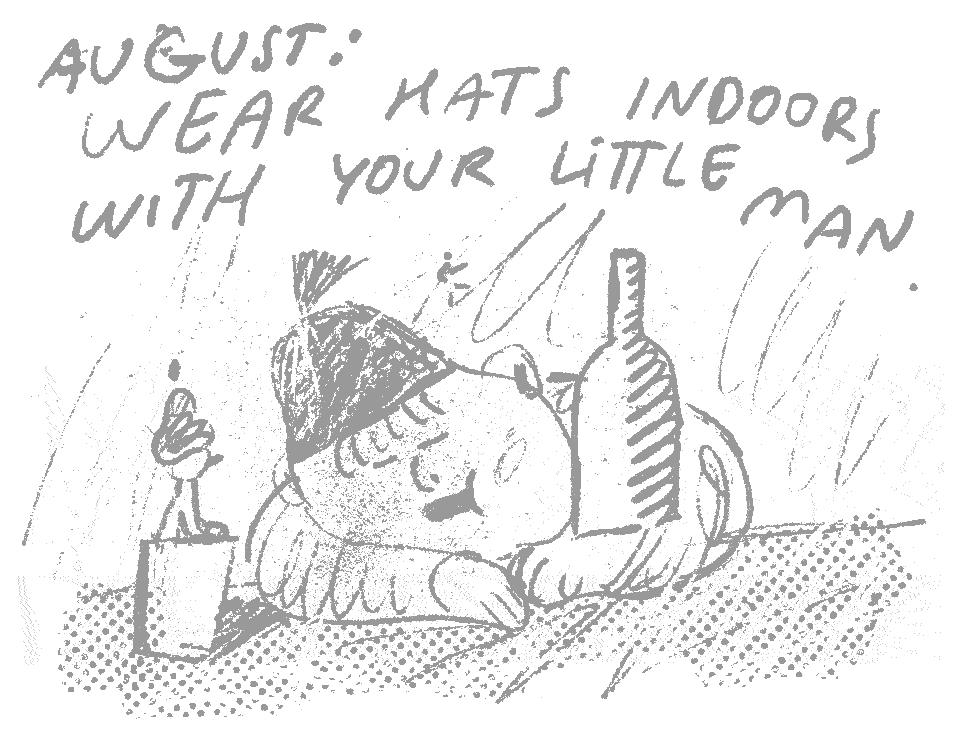 AUGUST:
WEAR HATS INDOORS
WITH YOUR LiTTLE MAN.